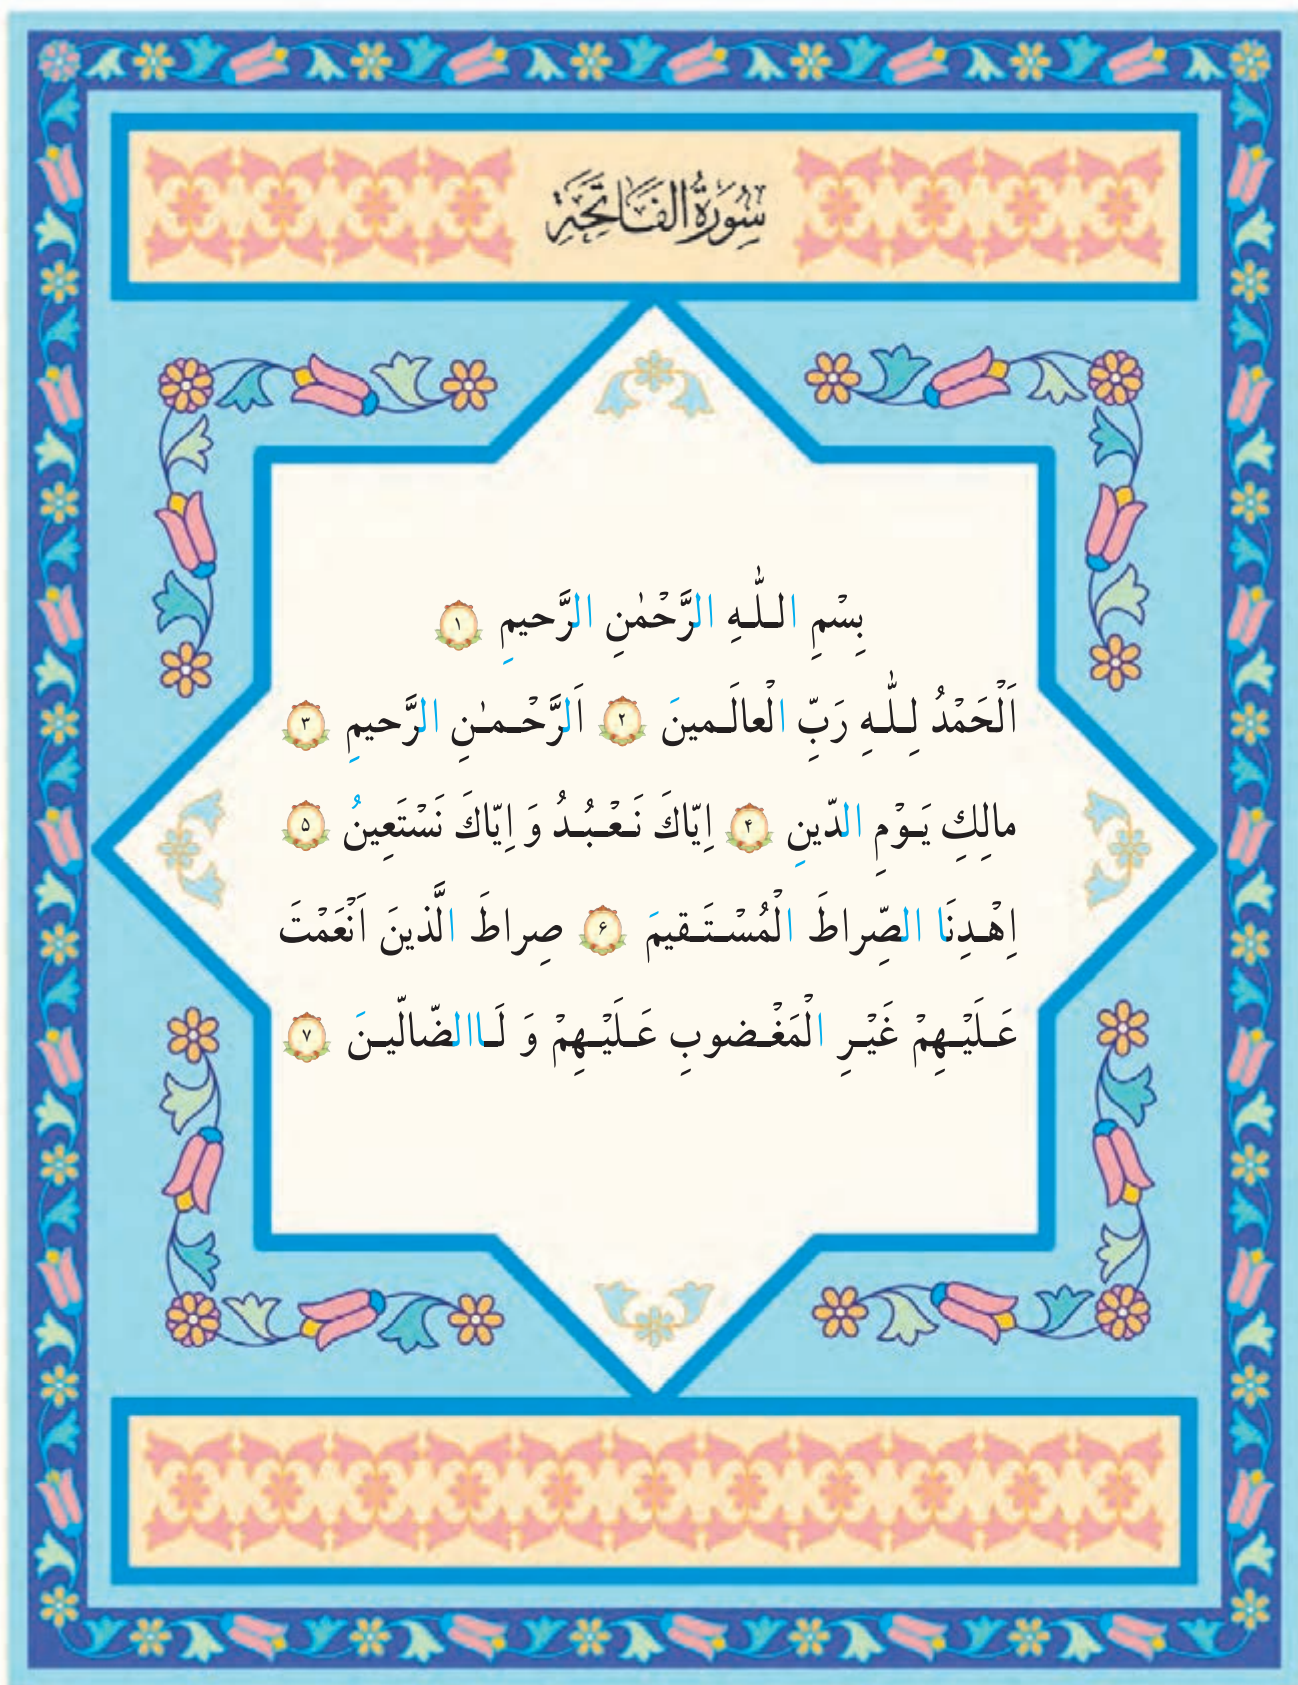 سُورَةُ الفَاتِحَةِ
بِسْمِ اللّٰهِ الرَّحْمٰنِ الرَّحیمِ ۱
اَلْحَمْدُ لِلّٰهِ رَبِّ الْعالَمینَ ۲ اَلرَّحْمٰنِ الرَّحیمِ ۳
مالِكِ یَوْمِ الدّینِ ۴ اِیّاكَ نَعْبُدُ وَ اِیّاكَ نَسْتَعِینُ ۵
اِهْدِنَا الصِّراطَ الْمُسْتَقیمَ ۶ صِراطَ الَّذینَ اَنْعَمْتَ
عَلَیْهِمْ غَیْرِ الْمَغْضوبِ عَلَیْهِمْ وَ لَاالضّالّینَ ۷